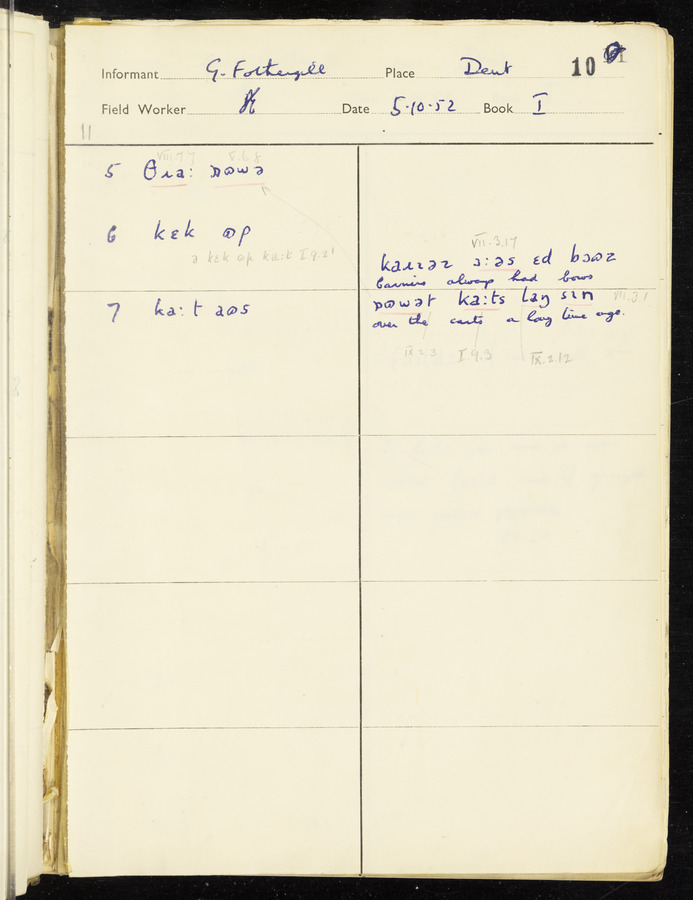 Informant G. Fothergill Place Dent 10
Field Worker Date 5.10.52 Book I
11
VIII.7.7 V.6.8
5 θɹa: ɒɷwə
6 kɛk ɷp
ə kɛk ɷp ka:t I.9.2
7 ka:t aɷs
VII.3.17
ɔ:əs ɛd bɔɷz
carriers always had bows
ɒɷwət ka:ts laŋ sɪn VII.3.1
over the carts a long time ago.
IX.2.3 I.9.3 IX.2.12